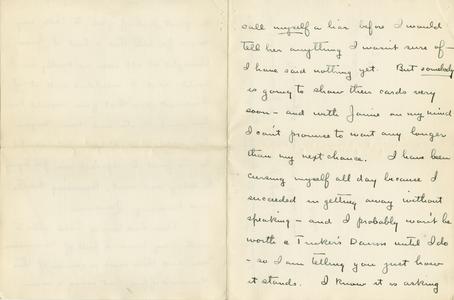 call myself a liar before I would
tell her anything I wasn't sure of –
I have said nothing yet. But somebody
is going to show their cards very
soon – and with Janie on my mind
I can't promise to wait any longer
than my next chance. I have been
cursing myself all day because I
succeeded in getting away without
speaking – and I probably won't be
worth a Tinker's Damn until I do
– so I am telling you just how
it stands. I know it is asking